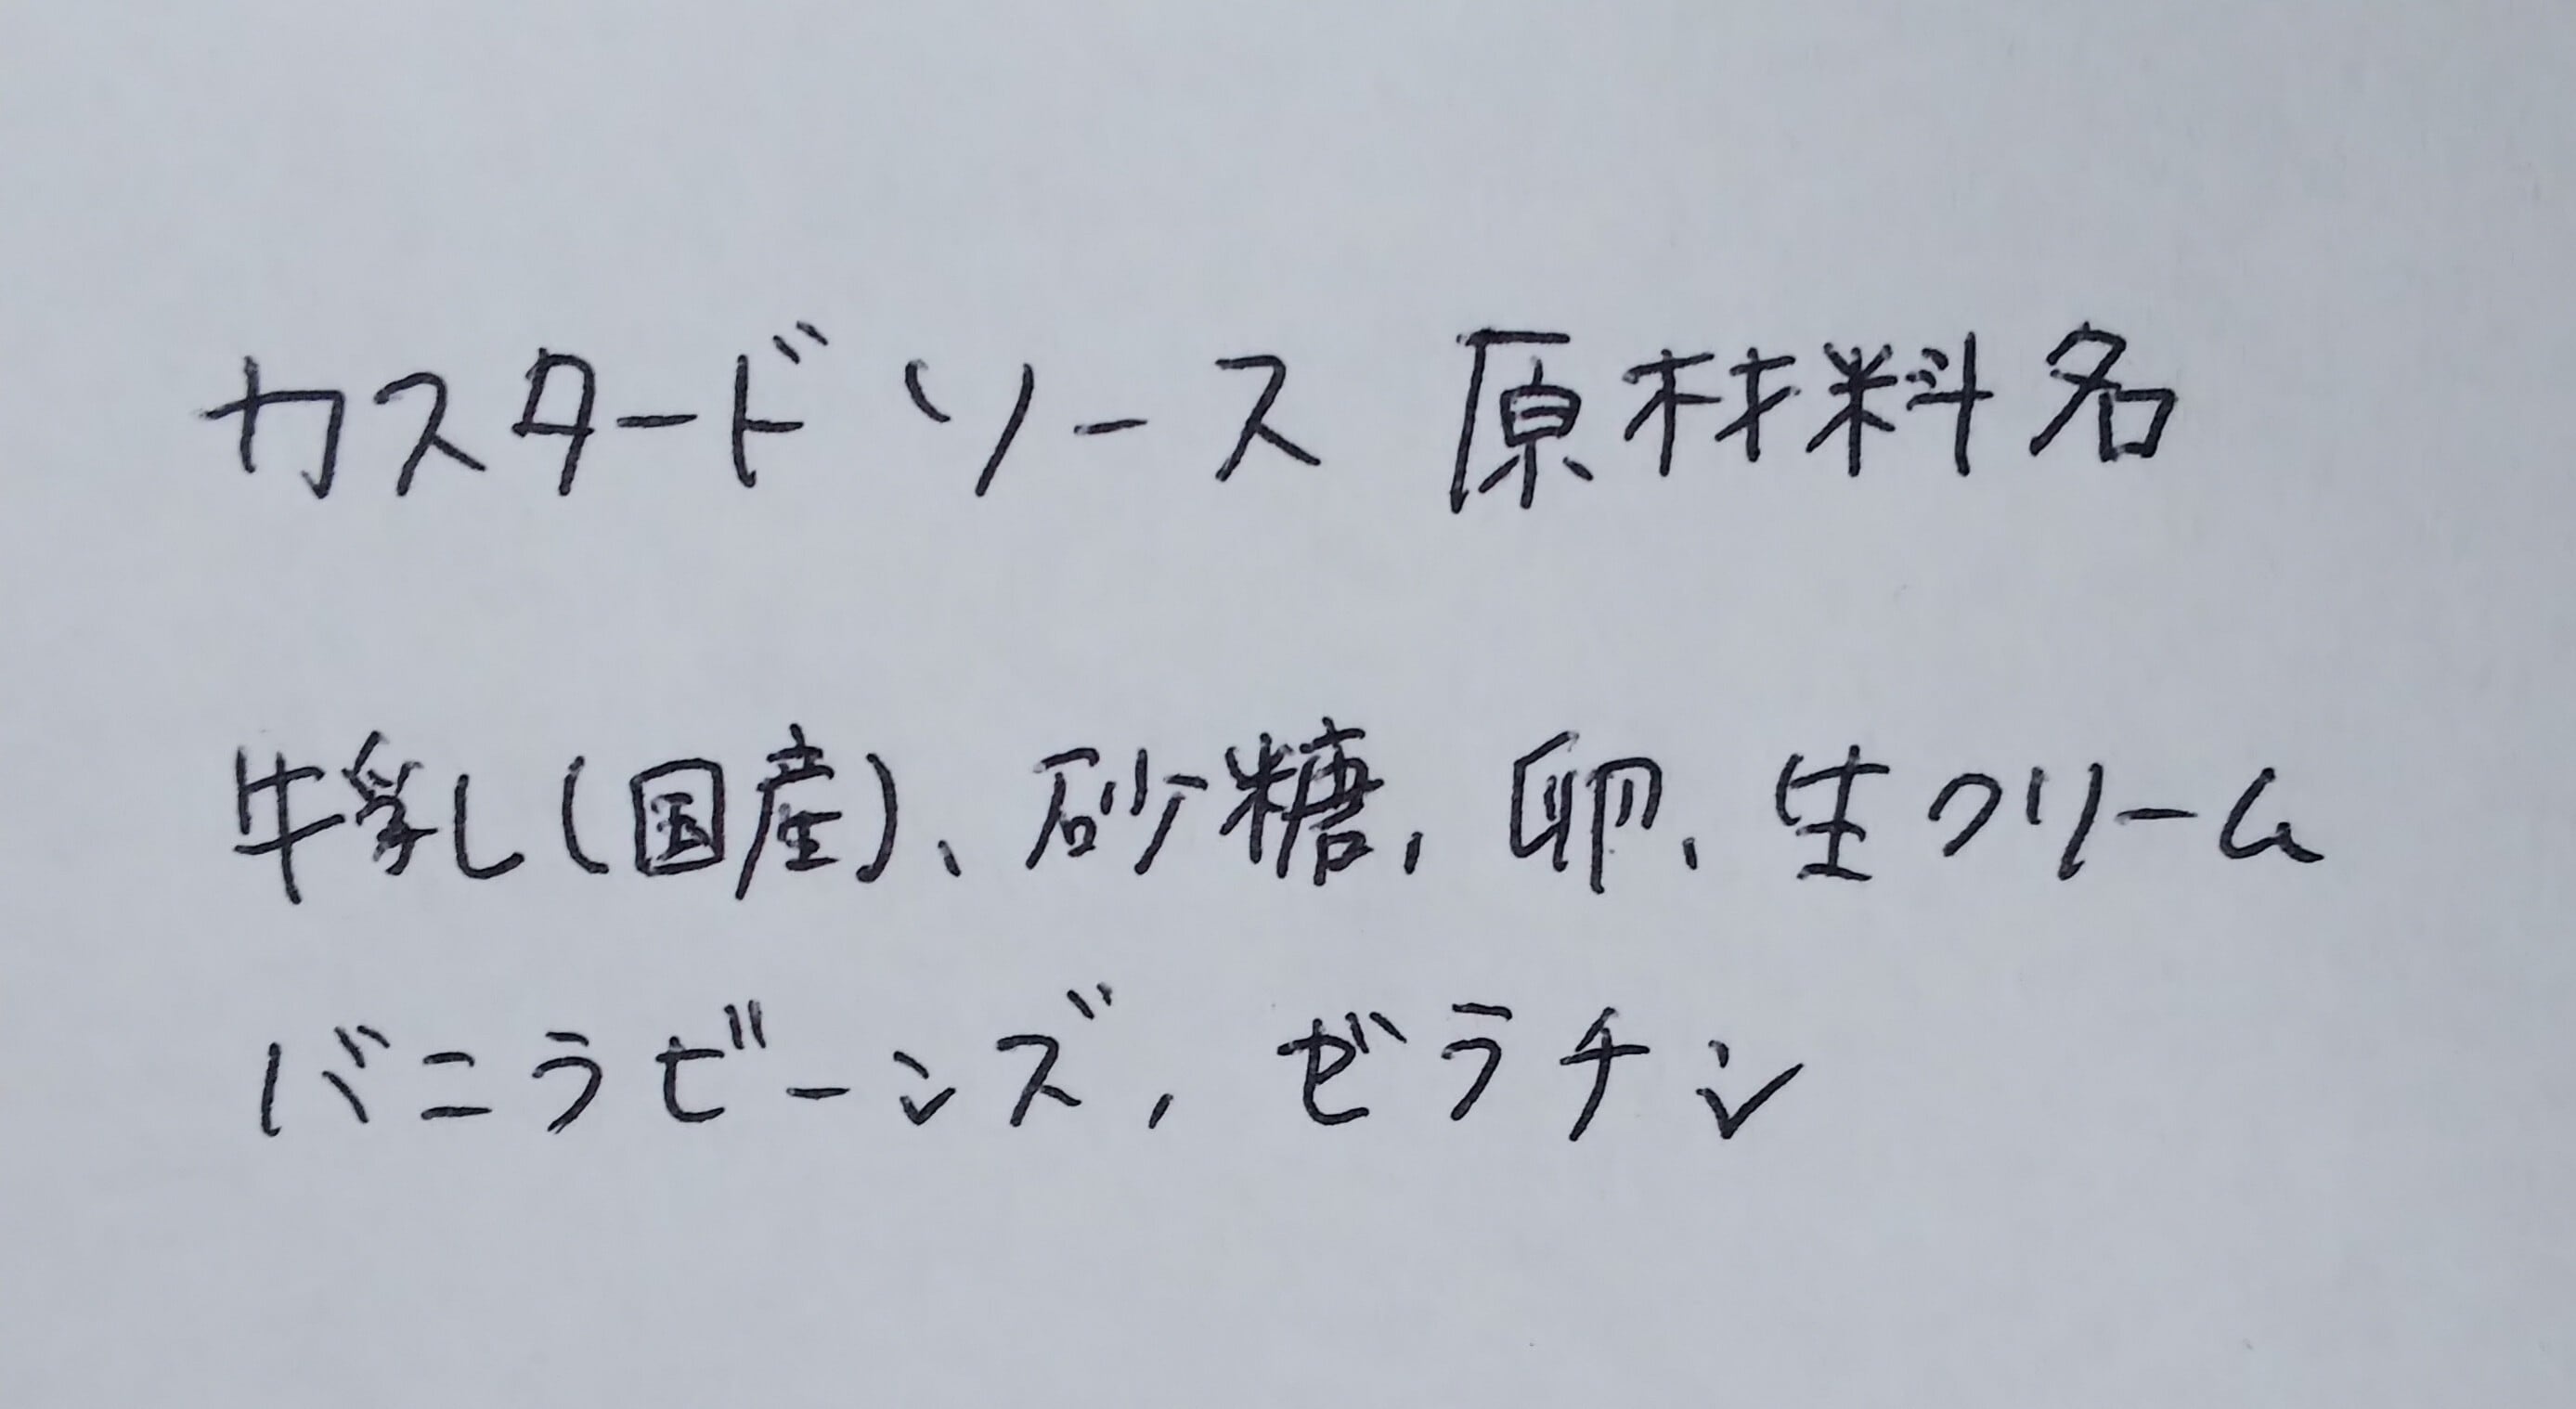 カスタードソース 原材料名
牛乳(国産)、砂糖、卵、生クリーム
バニラビーンズ, ゼラチン